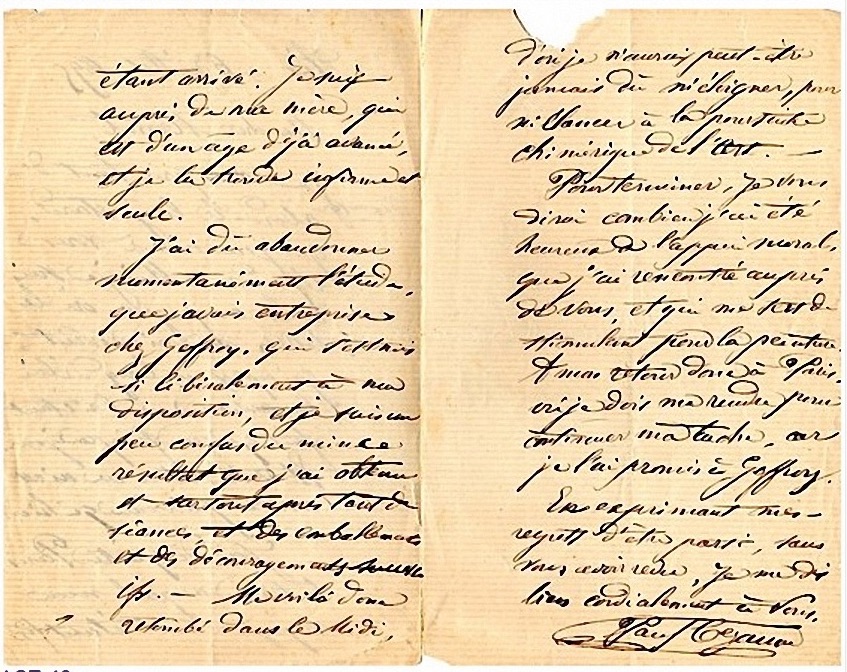 étant arrivé. Je suis
auprès de ma mère, qui
est d'un âge déjà avancé,
et je la trouve infirme et
seule.
J'ai dû abandonner
momentanément l'étude,
que j'avais entreprise
chez Geffroy, qui s'est mis
si libéralement à ma
disposition, et je suis un
peu confus du mince
résultat que j'ai obtenu
et surtout après tant de
séances, et des emballements
et des découragements succes
ifs. — Me voilà donc
retombé dans le Midi,
d'où je n'aurais peut-être
jamais dû m'éloigner, pour
m'élancer à la poursuite
chimérique de l'art. —
Pour terminer, je vous
dirai combien j'ai été
heureux de l'appui moral,
que j'ai rencontré auprès
de vous, et qui me sert de
stimulant pour la peinture.
A mon retour donc à Paris,
où je dois me rendre pour
continuer ma tache, car
je l'ai promis à Geffroy.
En exprimant mes
regrets d'être parti, sans
vous avoir revu, je me dis
bien cordialement à vous,
Paul Cezanne